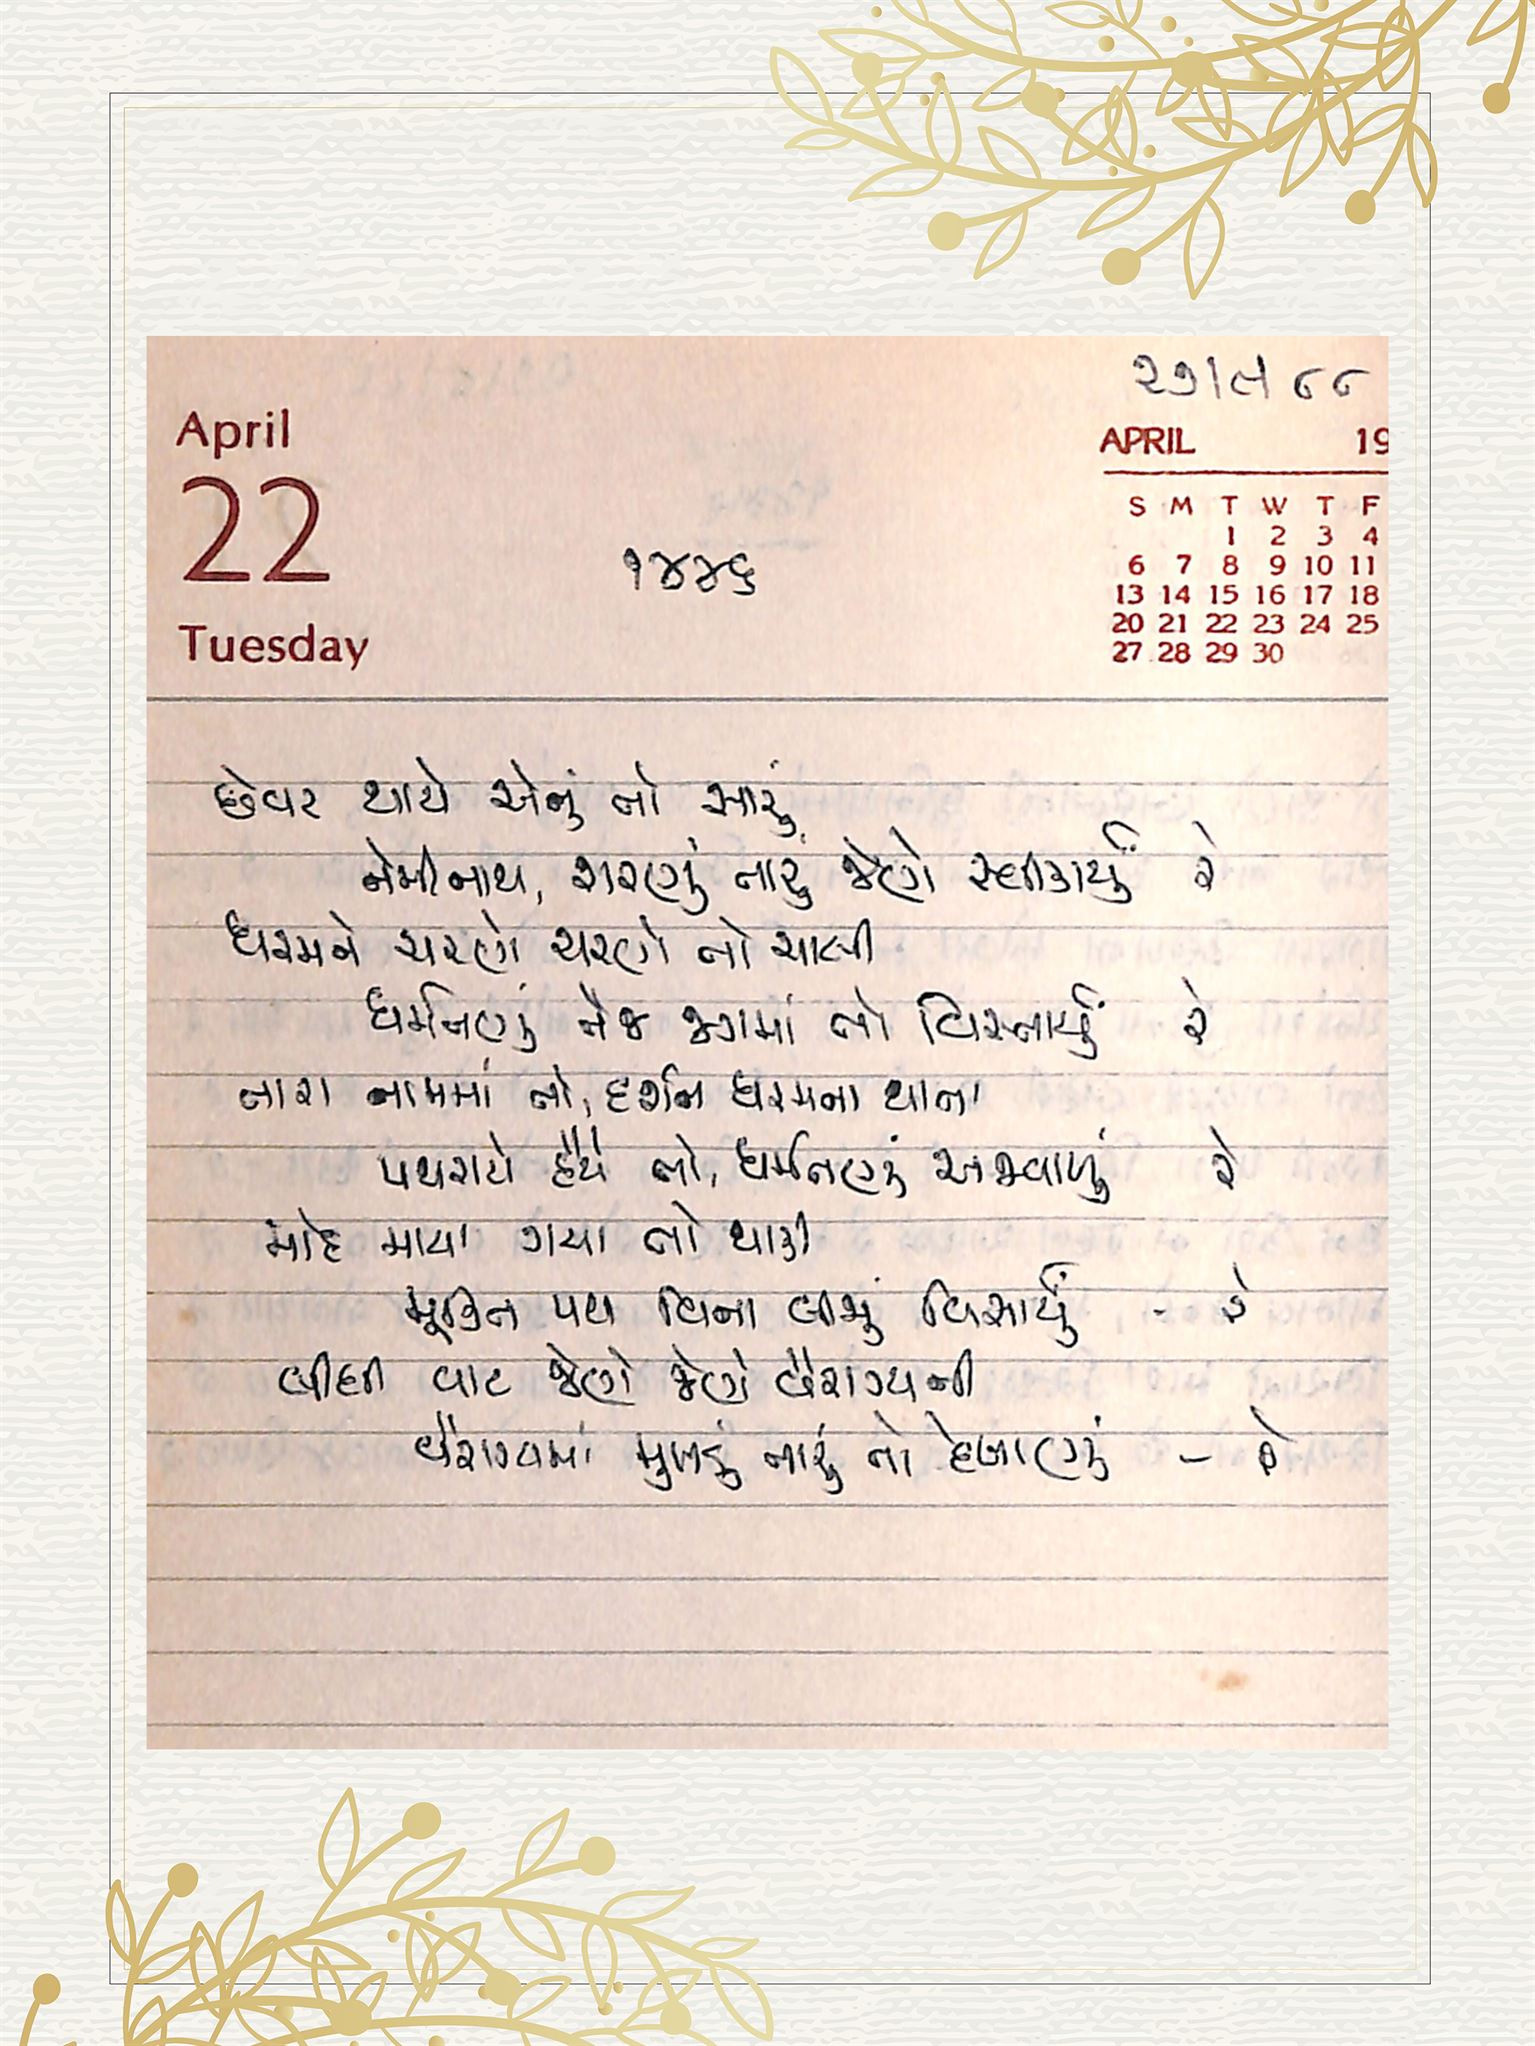 ૨૭|૯|૮૮
April
22
Tuesday
APRIL 19
S M T W T F
1 2 3 4
6 7 8 9 10 11
13 14 15 16 17 18
20 21 22 23 24 25
27 28 29 30
૧૪૪૬
છેવર થાયે એનું તો સારું
નેમીનાથ, શરણું તારું જેણે સ્વીકાર્યું રે
ધરમને ચરણે ચરણે તો ચાલી
ધર્મતણું તેજ જગમાં તો વિસ્તાર્યું રે
તારા નામમાં તો, દર્શન ધરમના થાતા
પથરાયે હૈયે તો, ધર્મતણું અજવાળું રે
મોહ માયા ગયા તો થાકી
મૂક્તિ પથ વિના બીજું વિસાર્યું - રે
લીધી વાટ જેણે જેણે વૈરાગ્યની
વૈરાગ્યમાં મુખડું તારું તો દેખાણું - રે